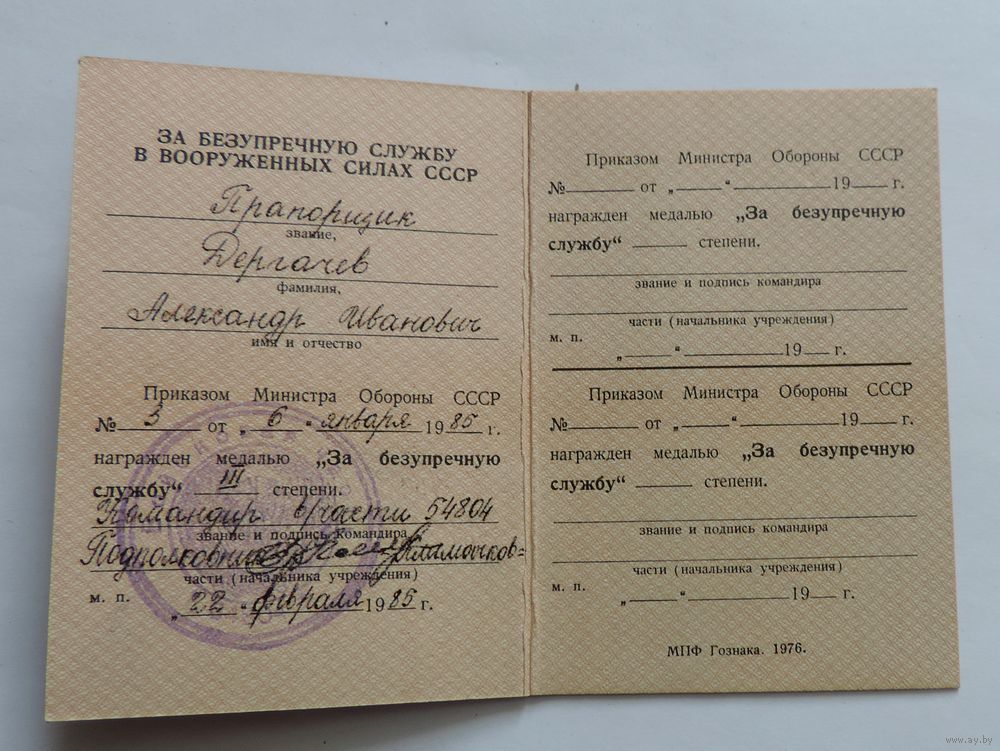 ЗА БЕЗУПРЕЧНУЮ СЛУЖБУ
В ВООРУЖЕННЫХ СИЛАХ СССР
Прапорщик
звание,
Дергачев
фамилия,
Александр Иванович
имя и отчество
Приказом Министра Обороны СССР
№ 3 от „ 6 “ января 1985 г.
награжден медалью „За безупречную
службу“ III степени.
Командир в/части 54804
звание и подпись командира
Подполковник
части (начальника учреждения)
м. п. „ 22 “ февраля 1985 г.
Приказом Министра Обороны СССР
№ от „ “ 19 г.
награжден медалью „За безупречную
службу“ степени.
звание и подпись командира
части (начальника учреждения)
м. п.
„ “ 19 г.
Приказом Министра Обороны СССР
№ от „ “ 19 г.
награжден медалью „За безупречную
службу“ степени.
звание и подпись командира
части (начальника учреждения)
м. п.
„ “ 19 г.
МПФ Гознака. 1976.
www.ay.by